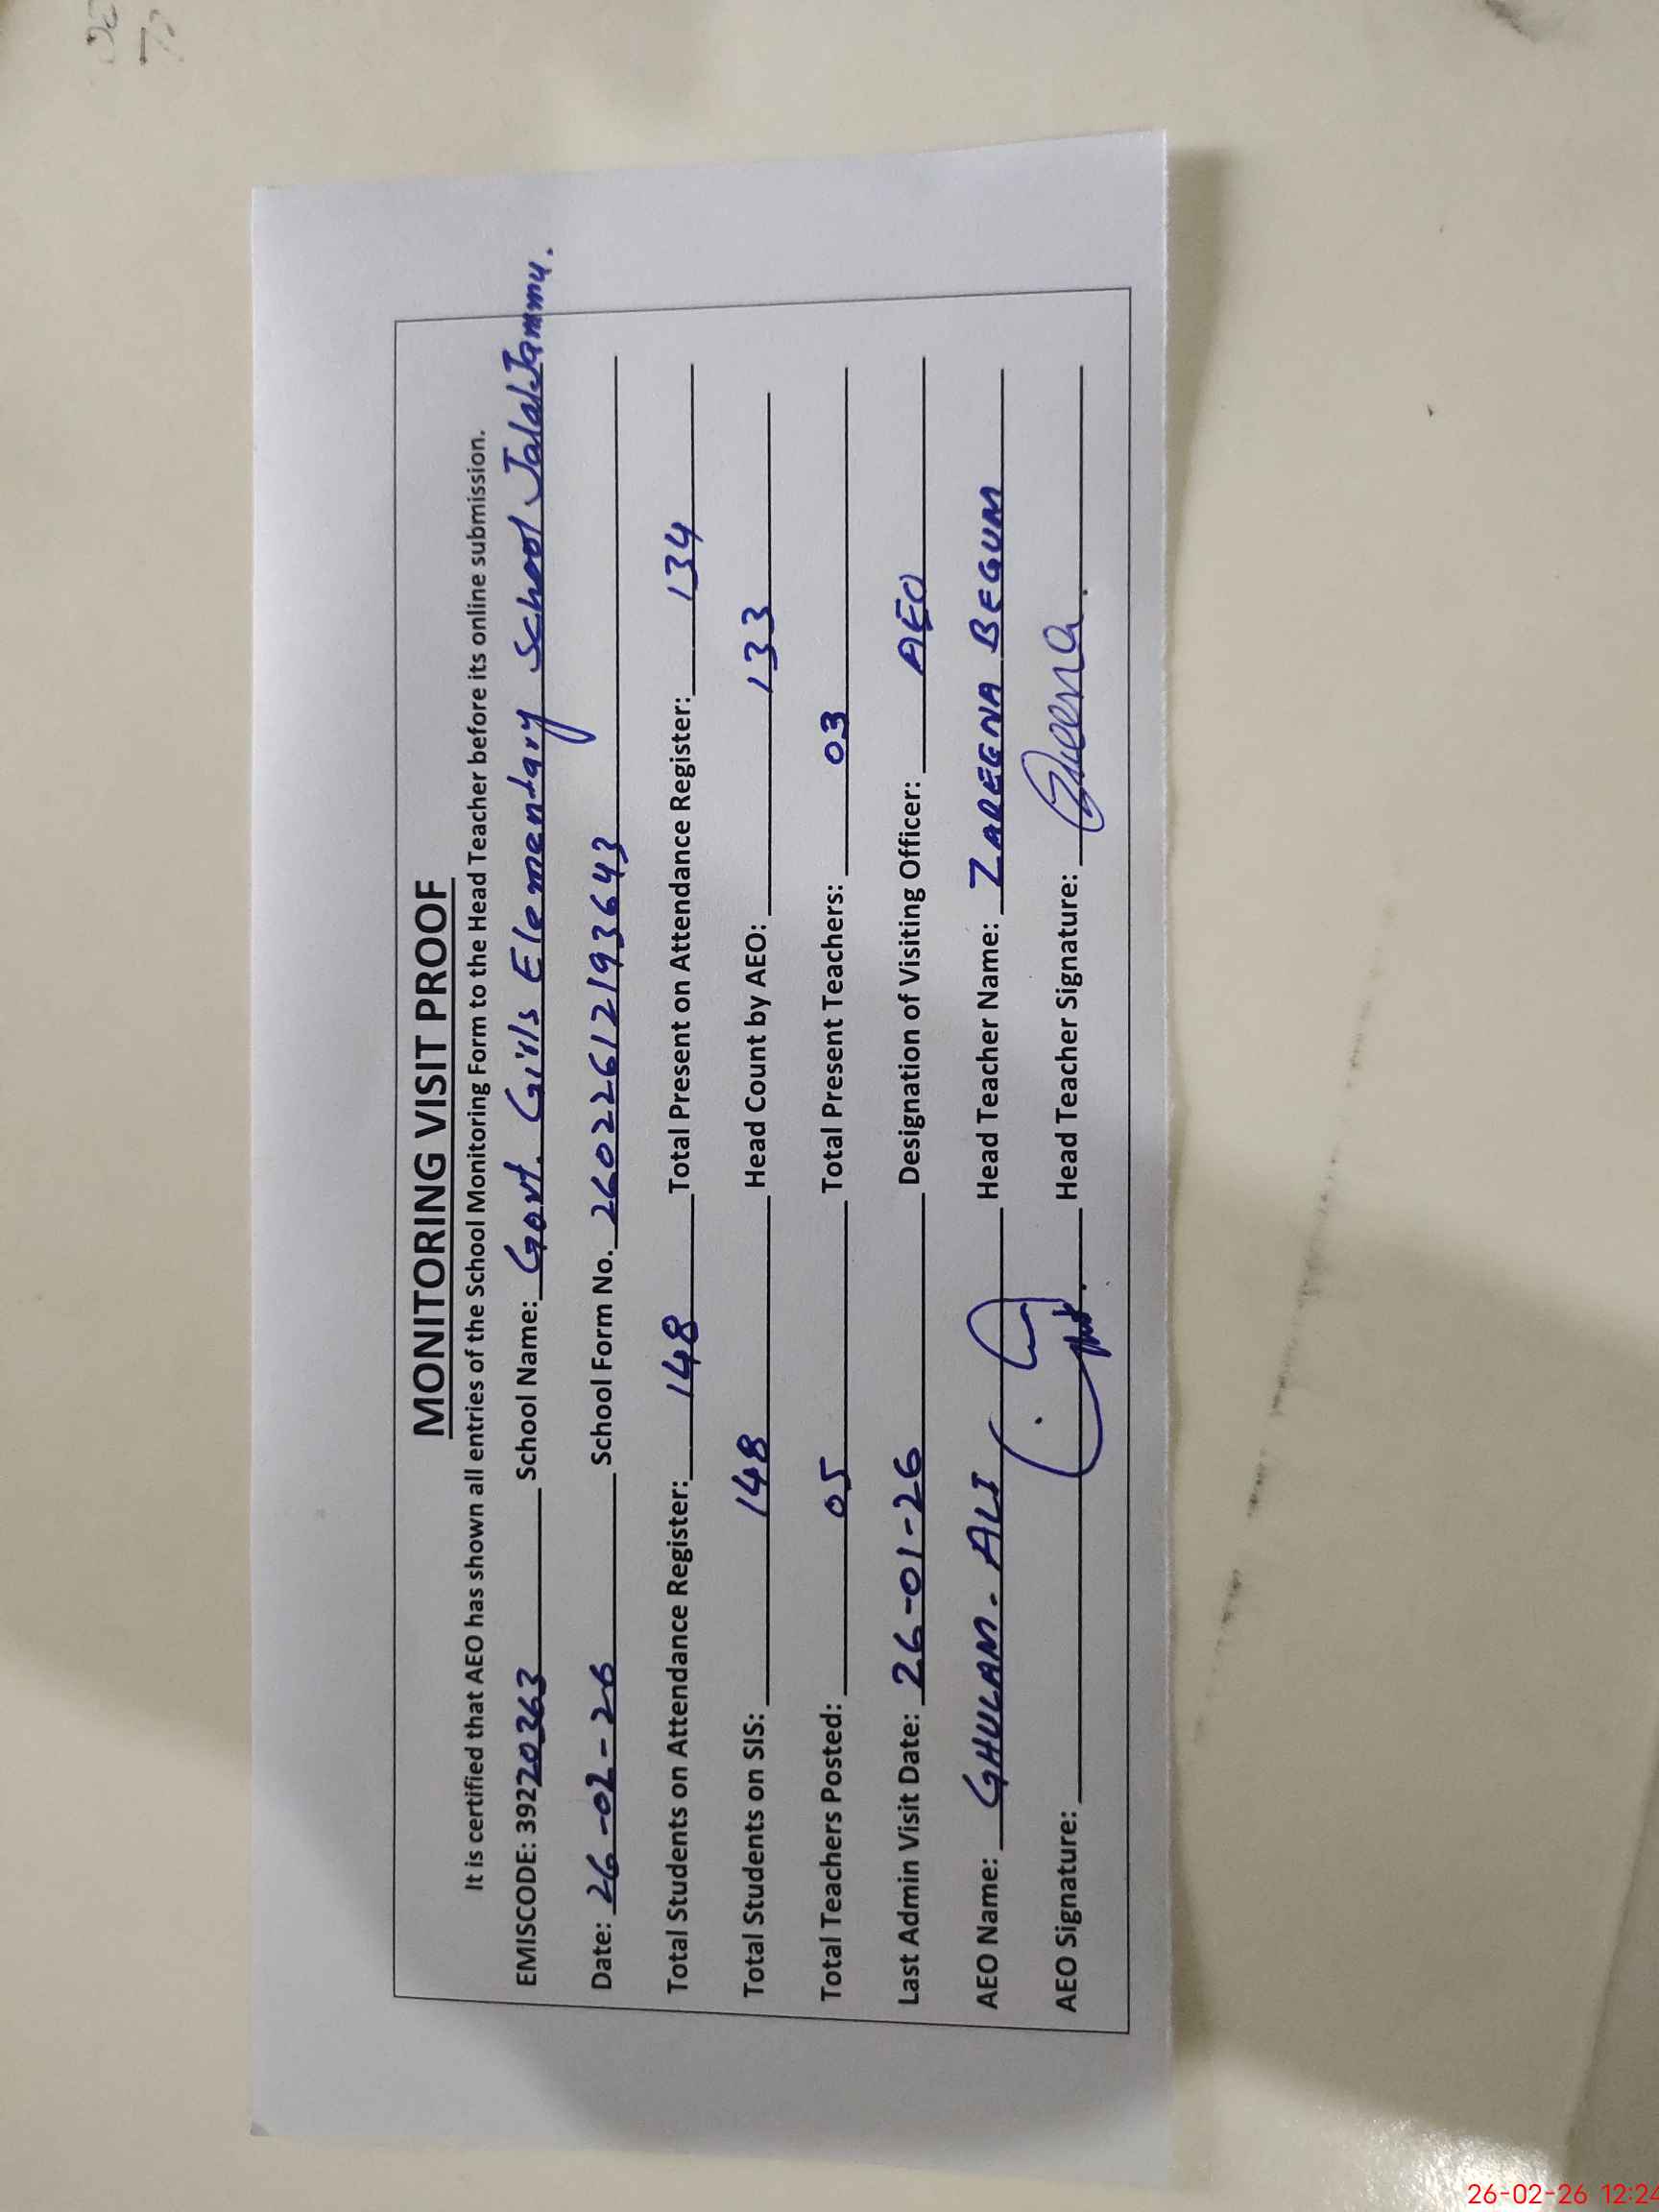 MONITORING VISIT PROOF
It is certified that AEO has shown all entries of the School Monitoring Form to the Head Teacher before its online submission.
EMISCODE: 39220363 School Name: Govt. Girls Elementary School Jalal Jammu.
Date: 26-02-26 School Form No. 26022612193643
Total Students on Attendance Register: 148 Total Present on Attendance Register: 134
Total Students on SIS: 148 Head Count by AEO: 133
Total Teachers Posted: 05 Total Present Teachers: 03
Last Admin Visit Date: 26-01-26 Designation of Visiting Officer: AEO
AEO Name: GHULAM. ALI Head Teacher Name: ZAREENA BEGUM
AEO Signature: Head Teacher Signature:
26-02-26 12:24